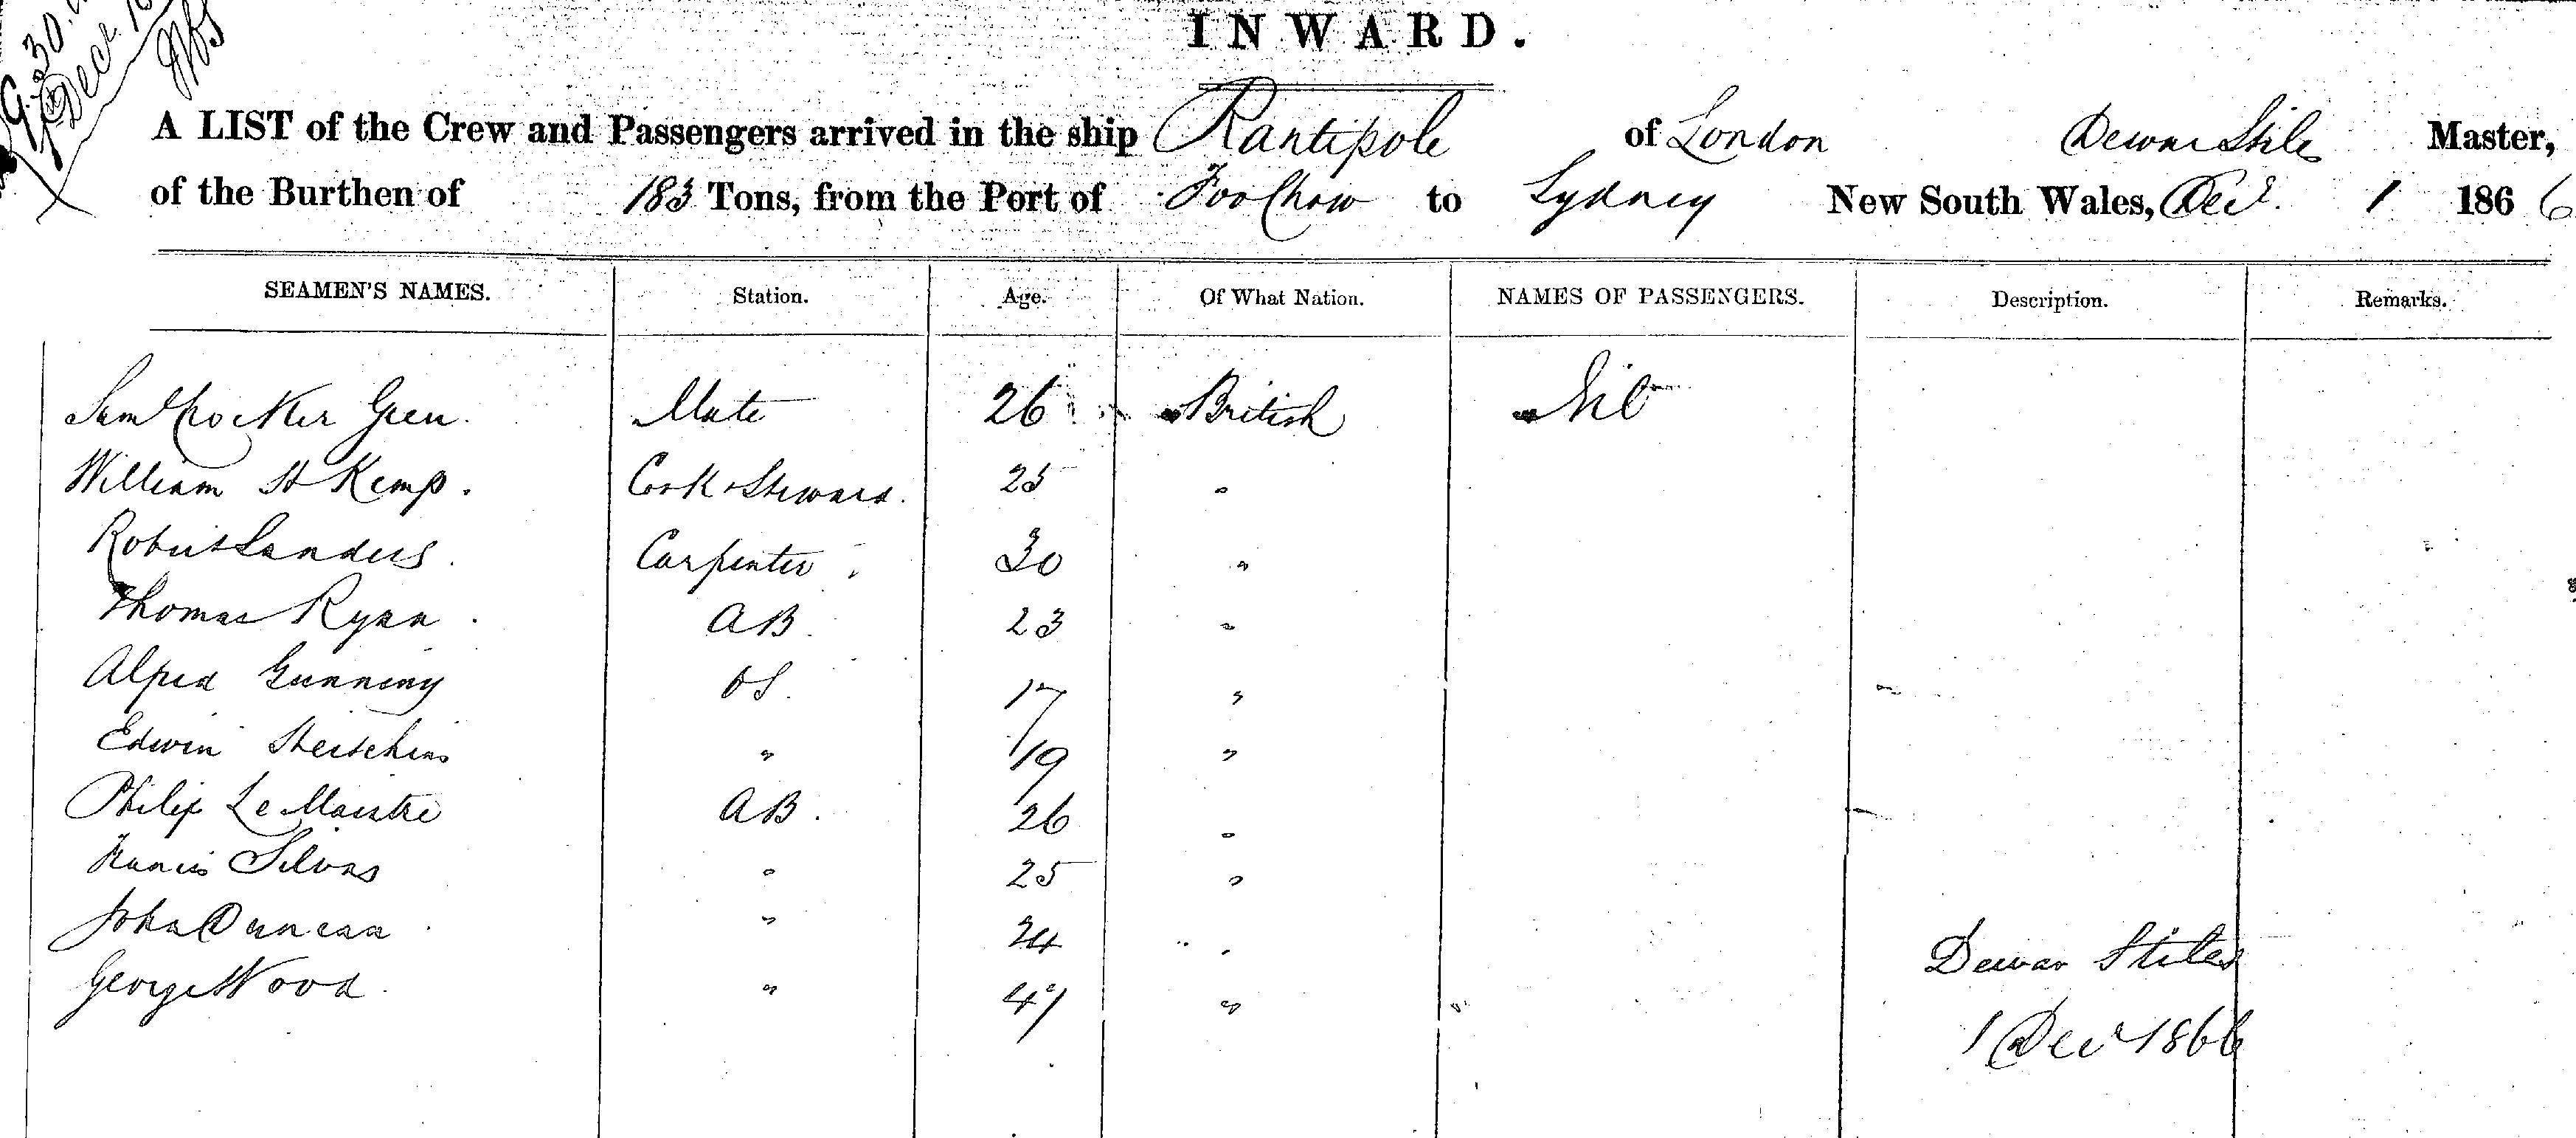 9.30
Decr. 1
INWARD.
A LIST of the Crew and Passengers arrived in the ship Rantipole of London Dewar Stiles Master,
of the Burthen of 183 Tons, from the Port of Foo Chow to Sydney New South Wales, Decr. 1 1866
SEAMEN'S NAMES. Station. Age. Of What Nation. NAMES OF PASSENGERS. Description. Remarks.
Saml Crocker Green. Mate 26 British Nil
William H Kemp. Cook & Steward. 25 "
Robert Sanders. Carpenter. 30 "
Thomas Ryan. AB. 23 "
Alfred Gunning OS. 17 "
Edwin " 19 "
Philip Le Maistre AB. 26 "
Francis Silvas " 25 "
John Duncan. " 24 "
George Wood. " 47 "
Dewar Stiles
1 Decr 1866